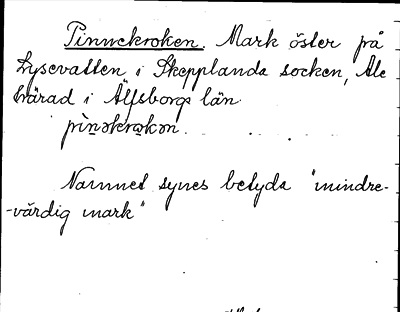 Pinnekroken. Mark öster på
Lysevatten i Skepplanda socken, Ale
härad i Älfsborgs län.
pìnəkrokən.
Namnet synes betyda "mindre-
-värdig mark"